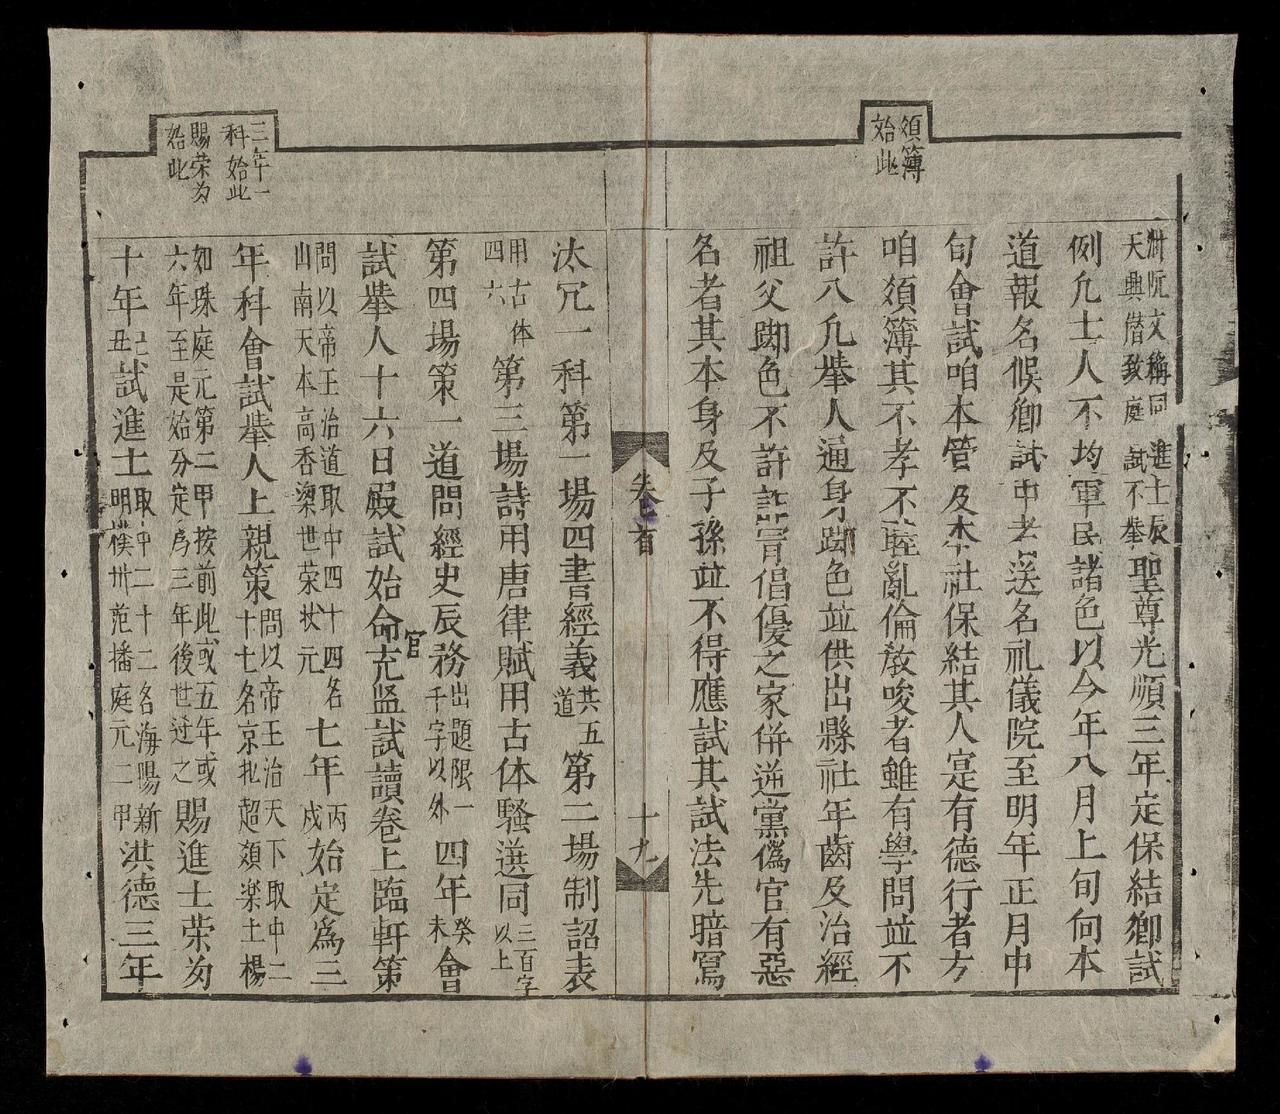 須簿
始此
州阮文稱同進士辰
天興僣致庭試不举聖尊光順三年定保結鄉試
例凢士人不均軍民諸色以今年八月上旬向本
道報名候鄉試中者送名礼儀院至明年正月中
旬會試咱本管及本社保結其人寔有德行者方
咱須簿其不孝不睦亂倫教唆者雖有學問並不
許入凢舉人通身脚色並供出縣社年齒及治經
祖父脚色不許詐冐倡優之家併逆黨僞官有惡
名者其本身及子孫並不得應試其試法先暗寫
卷首
十九
三年一
科始此
賜荣为
始此
汰冗一科第一場四書經義共五道第二場制詔表
用古体四六第三場詩用唐律賦用古体騷選同三百字以上
第四場策一道問經史辰務出題限一千字以外四年癸未會
試舉人十六日殿試始命官充監試讀卷上臨軒策
問以帝王治道取中四十四名山南天本高香梁世荣状元七年丙戍始定爲三
年科會試舉人上親策問以帝王治天下取中二十七名京北超類楽土楊
如珠庭元第二甲按前此或五年或六年至是始分定爲三年後世迂之賜進士荣为
十年己丑試進士取中二十二名海陽新明樸卅范播庭元二甲洪德三年